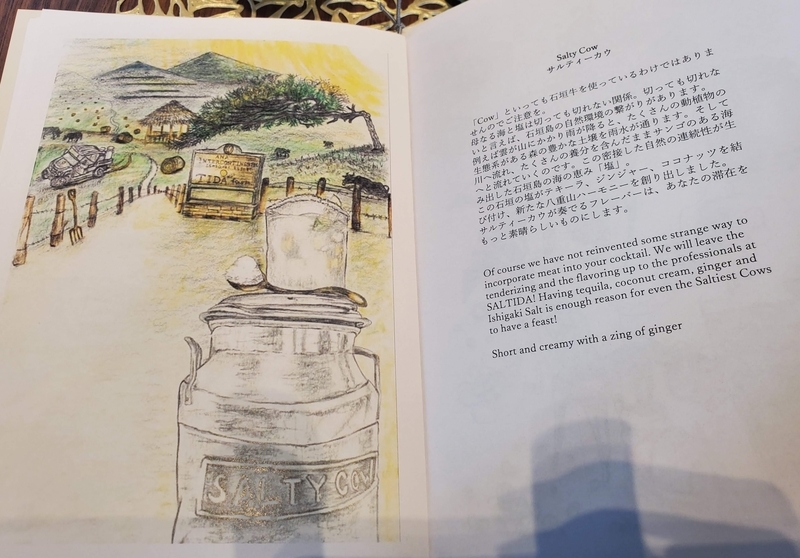 TIDA
SALTY COW
Salty Cow
サルティーカウ
「Cow」といっても石垣牛を使っているわけではありま
せんのでご注意を。
母なる海と塩は切っても切れない関係。切っても切れな
いと言えば、石垣島の自然環境の繋がりがあります。
例えば雲が山にかかり雨が降ると、たくさんの動植物の
生態系がある森の豊かな土壌を雨水が通ります。そして
川へ流れ、たくさんの養分を含んだままサンゴのある海
へと流れていくのです。この密接した自然の連続性が生
み出した石垣島の海の恵み「塩」。
この石垣の塩がテキーラ、ジンジャー、ココナッツを結
び付け、新たな八重山ハーモニーを創り出しました。
サルティーカウが奏でるフレーバーは、あなたの滞在を
もっと素晴らしいものにします。
Of course we have not reinvented some strange way to
incorporate meat into your cocktail. We will leave the
tenderizing and the flavoring up to the professionals at
SALTIDA! Having tequila, coconut cream, ginger and
Ishigaki Salt is enough reason for even the Saltiest Cows
to have a feast!
Short and creamy with a zing of ginger